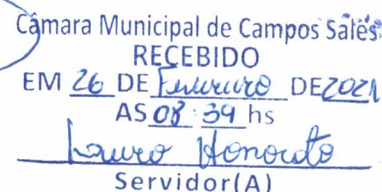 Câmara Municipal de Campos Sales
RECEBIDO
EM 26 DE Fevereiro DE 2021
AS 08:39 hs
Lauro Honorato
Servidor(A)